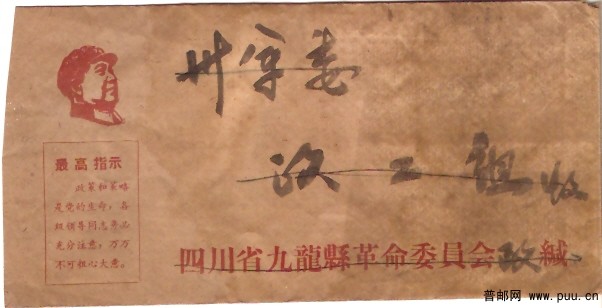 最高指示
政策和策略
是党的生命，各
级领导同志务必
充分注意，万万
不可粗心大意。
州 委
政工组收
四川省九龍縣革命委員會政緘
普邮网 www.puu.cn